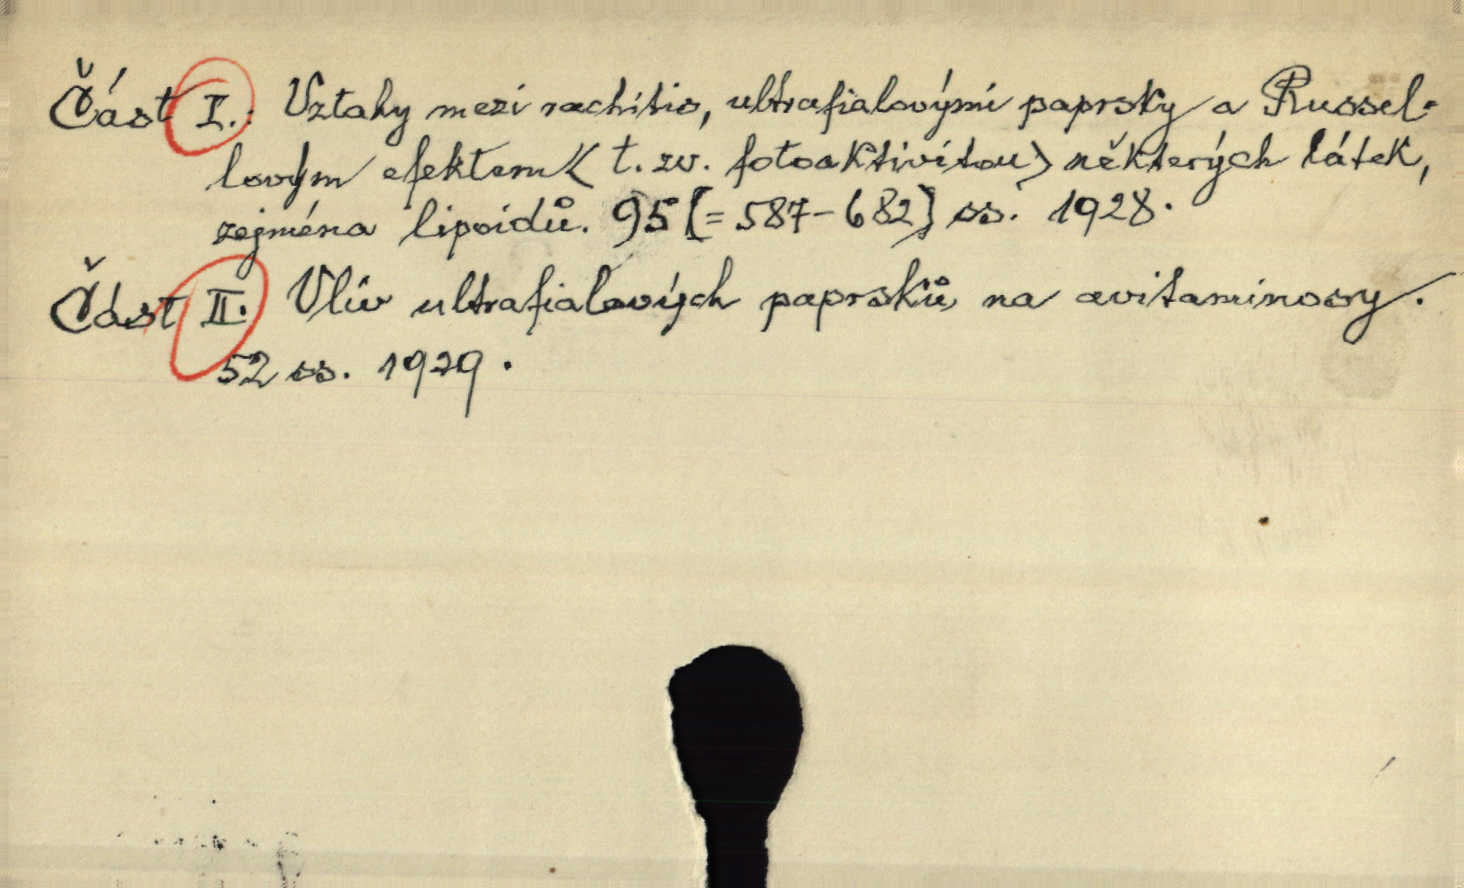 Část I.: Vztahy mezi rachitis, ultrafialovými paprsky a Russel-
lovým efektem (t. zv. fotoaktivitou) některých látek,
zejména lipoidů. 95 [= 587-682] ss. 1928.
Část II. Vliv ultrafialových paprsků na avitaminosy.
52 ss. 1929.